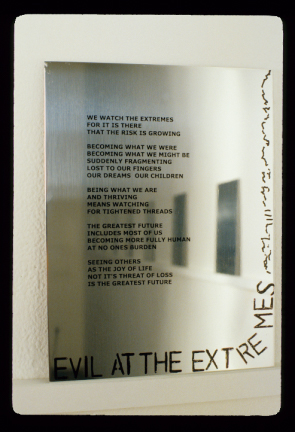 WE WATCH THE EXTREMES
FOR IT IS THERE
THAT THE RISK IS GROWING
BECOMING WHAT WE WERE
BECOMING WHAT WE MIGHT BE
SUDDENLY FRAGMENTING
LOST TO OUR FINGERS
OUR DREAMS OUR CHILDREN
BEING WHAT WE ARE
AND THRIVING
MEANS WATCHING
FOR TIGHTENED THREADS
THE GREATEST FUTURE
INCLUDES MOST OF US
BECOMING MORE FULLY HUMAN
AT NO ONES BURDEN
SEEING OTHERS
AS THE JOY OF LIFE
NOT IT'S THREAT OF LOSS
IS THE GREATEST FUTURE
EVIL AT THE EXTREMES